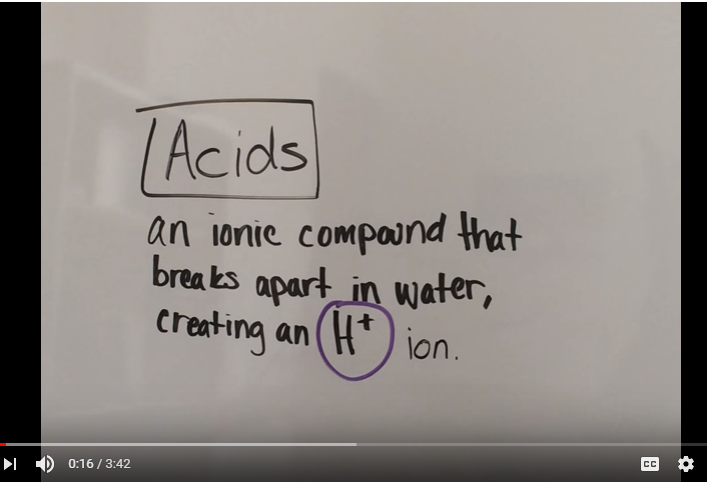 Acids
an ionic compound that
breaks apart in water,
creating an H+ ion.
0:16 / 3:42
CC